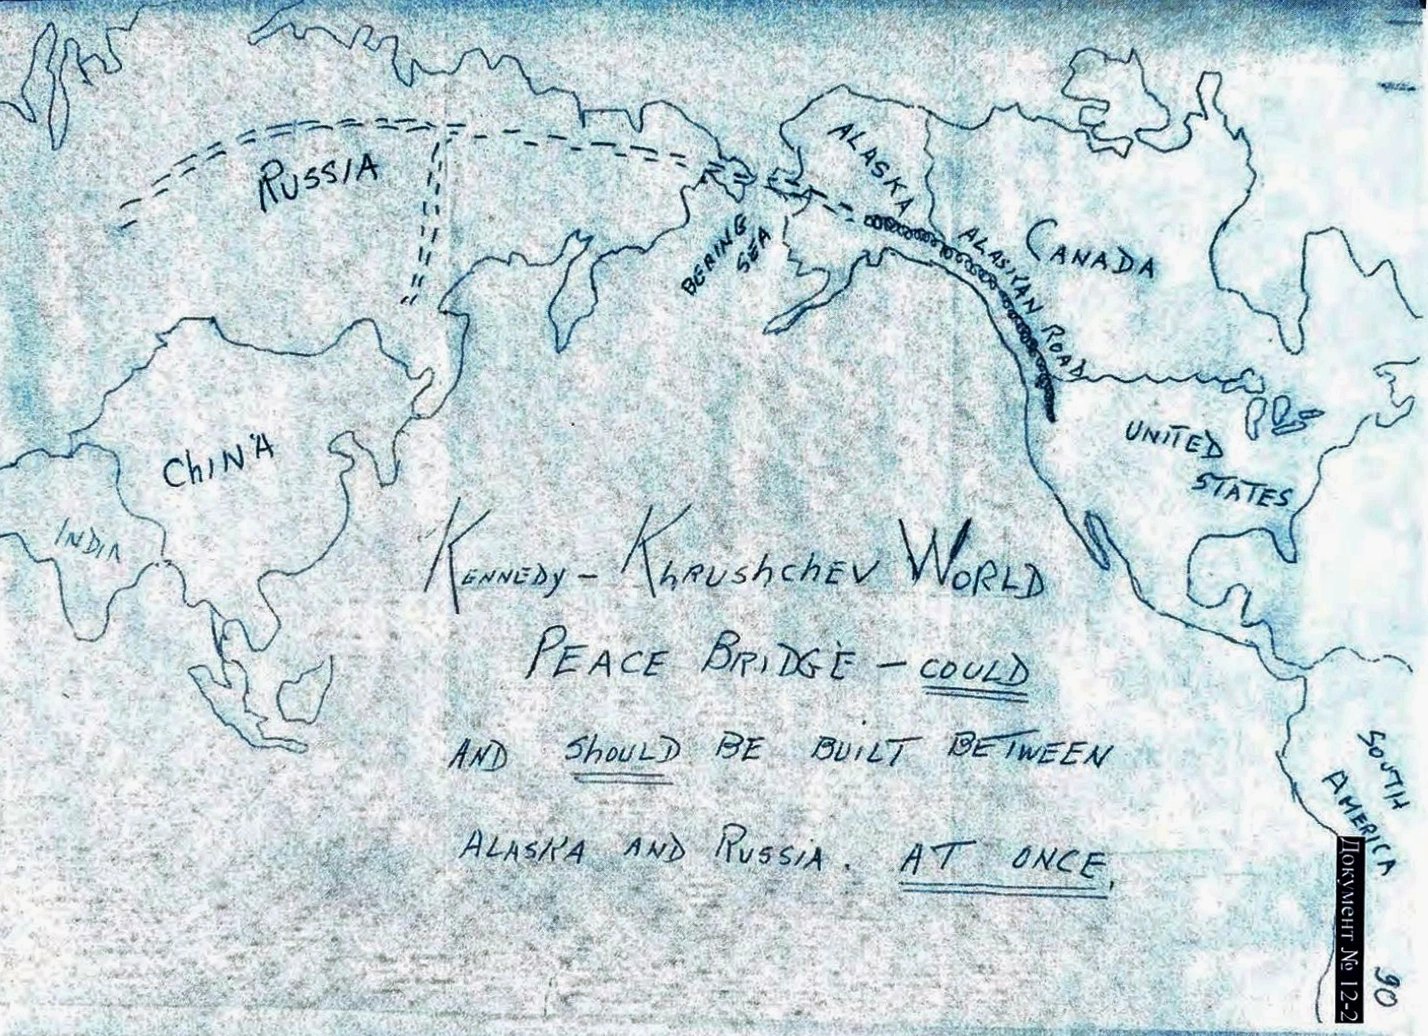 RUSSIA
ALASKA
BERING
SEA
CANADA
ALASKAN ROAD
CHINA
INDIA
UNITED
STATES
KENNEDY – KHRUSHCHEV WORLD
PEACE BRIDGE – COULD
AND SHOULD BE BUILT BETWEEN
ALASKA AND RUSSIA. AT ONCE.
SOUTH
AMERICA
Документ № 12-2
90